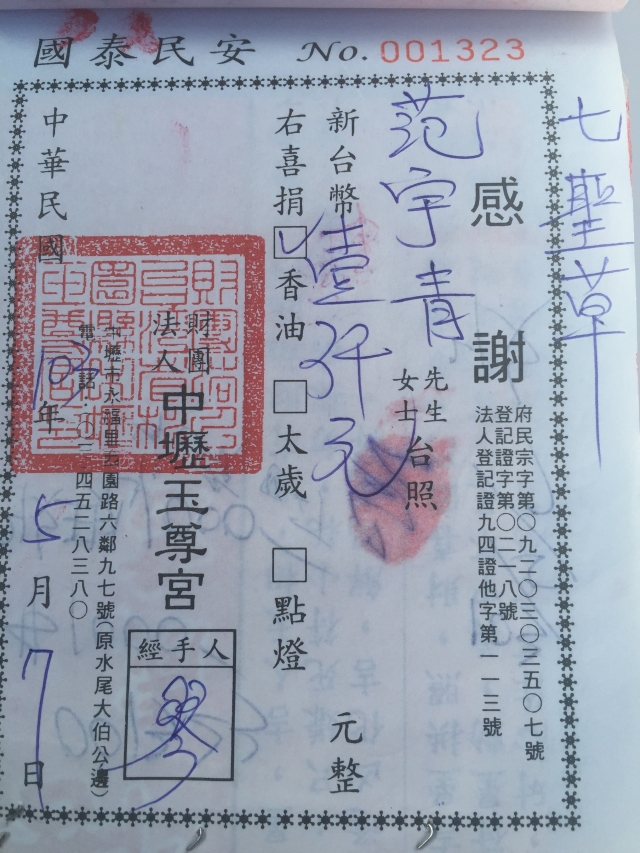 國泰民安 No. 001323
七聖草
感謝
府民宗字第〇九二〇三〇三三五〇七號
登記證字第〇二一八號
法人登記證九四證他字第一一三號
范宇青 先生 女士 台照
新台幣壹仟元 元整
右喜捐 ☑香油 □太歲 □點燈
財團法人中壢玉尊宮
經手人
中壢市永福里 園路六鄰九七號(原水尾大伯公邊)
電話 四五二八三八〇
中華民國 年5月7日